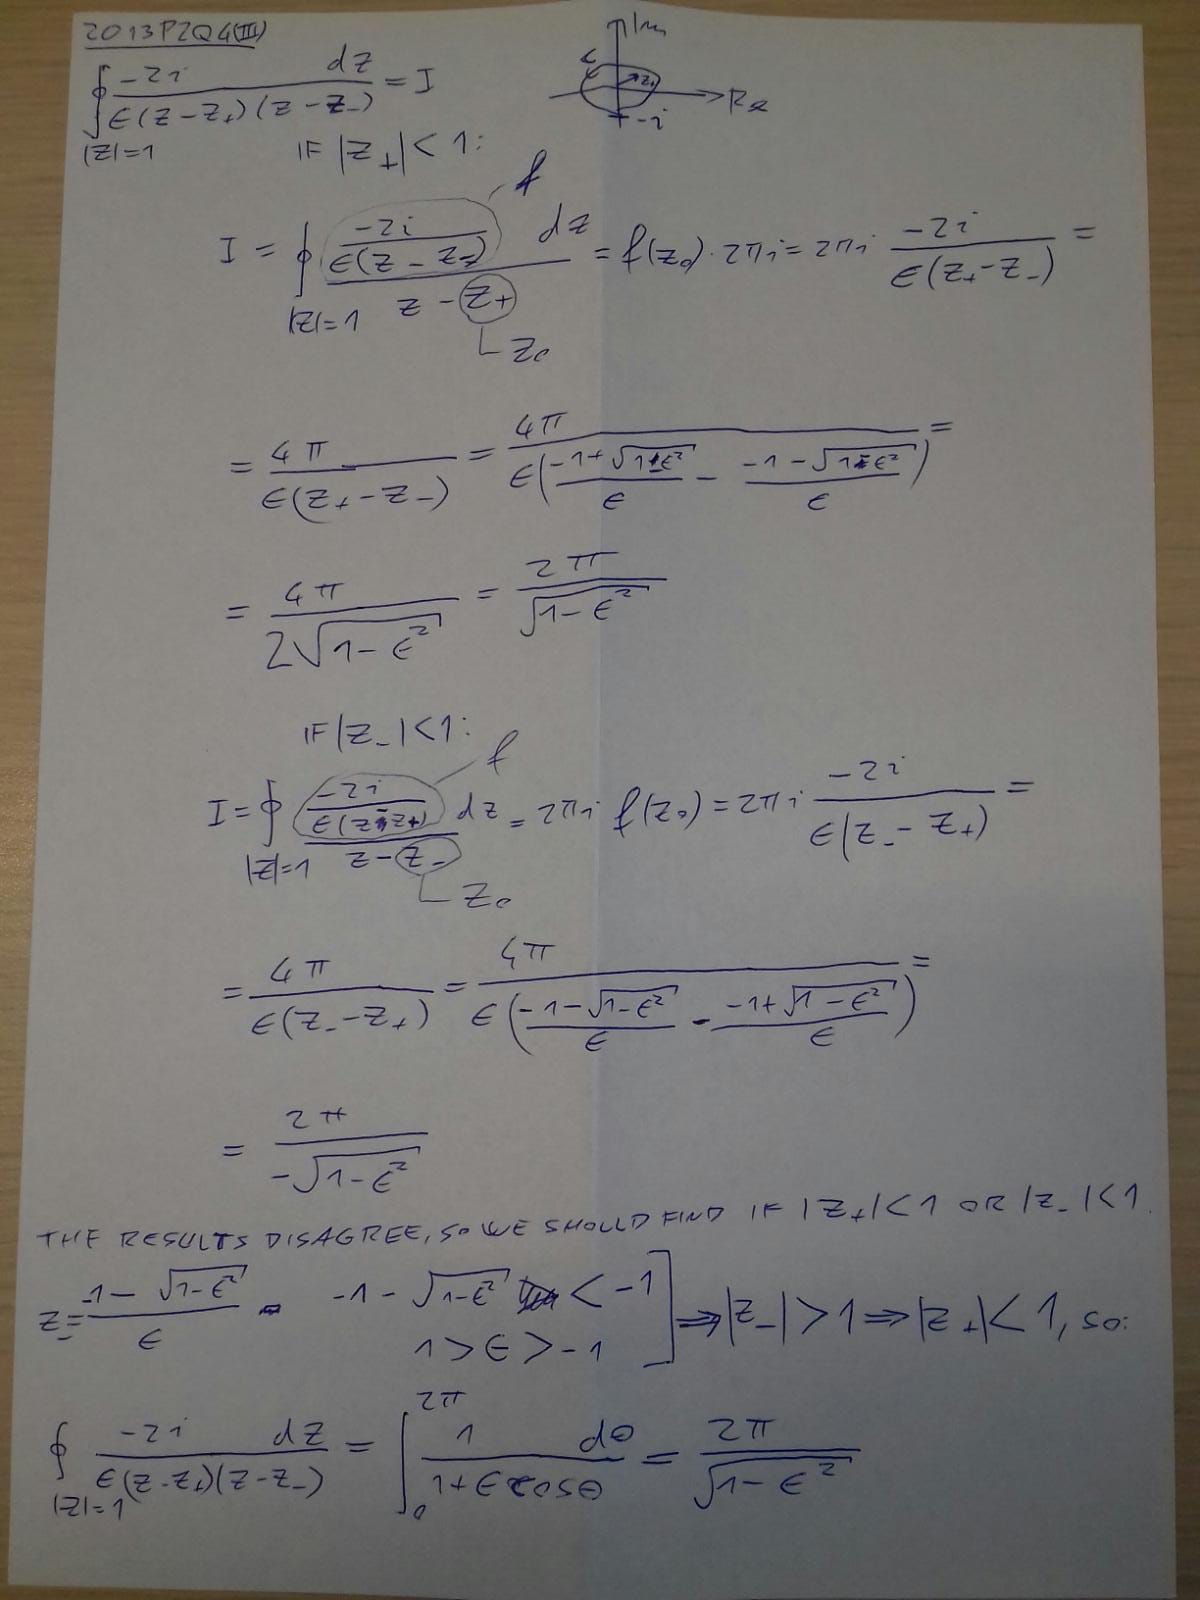 2013P2Q4(III)
∮|z|=1 -2i dz / ε(z-z₊)(z-z₋) = I
Im
z₊
Re
-i
IF |z₊| < 1:
f
I = ∮|z|=1 (-2i / ε(z-z₋)) / (z-z₊) dz = f(z₀)·2πi = 2πi -2i / ε(z₊-z₋) =
z₀
= 4π / ε(z₊-z₋) = 4π / ε((-1+√1-ε²)/ε - (-1-√1-ε²)/ε) =
= 4π / 2√1-ε² = 2π / √1-ε²
IF |z₋| < 1:
f
I = ∮|z|=1 (-2i / ε(z-z₊)) / (z-z₋) dz = 2πi f(z₀) = 2πi -2i / ε(z₋-z₊) =
z₀
= 4π / ε(z₋-z₊) = 4π / ε((-1-√1-ε²)/ε - (-1+√1-ε²)/ε) =
= 2π / -√1-ε²
THE RESULTS DISAGREE, SO WE SHOULD FIND IF |z₊|<1 OR |z₋|<1.
z₋ = (-1-√1-ε²)/ε -1-√1-ε² < -1
1 > ε > -1 ] ⇒ |z₋| > 1 ⇒ |z₊| < 1, SO:
∮|z|=1 -2i dz / ε(z-z₊)(z-z₋) = ∫₀^2π 1 / (1+εcosθ) dθ = 2π / √1-ε²